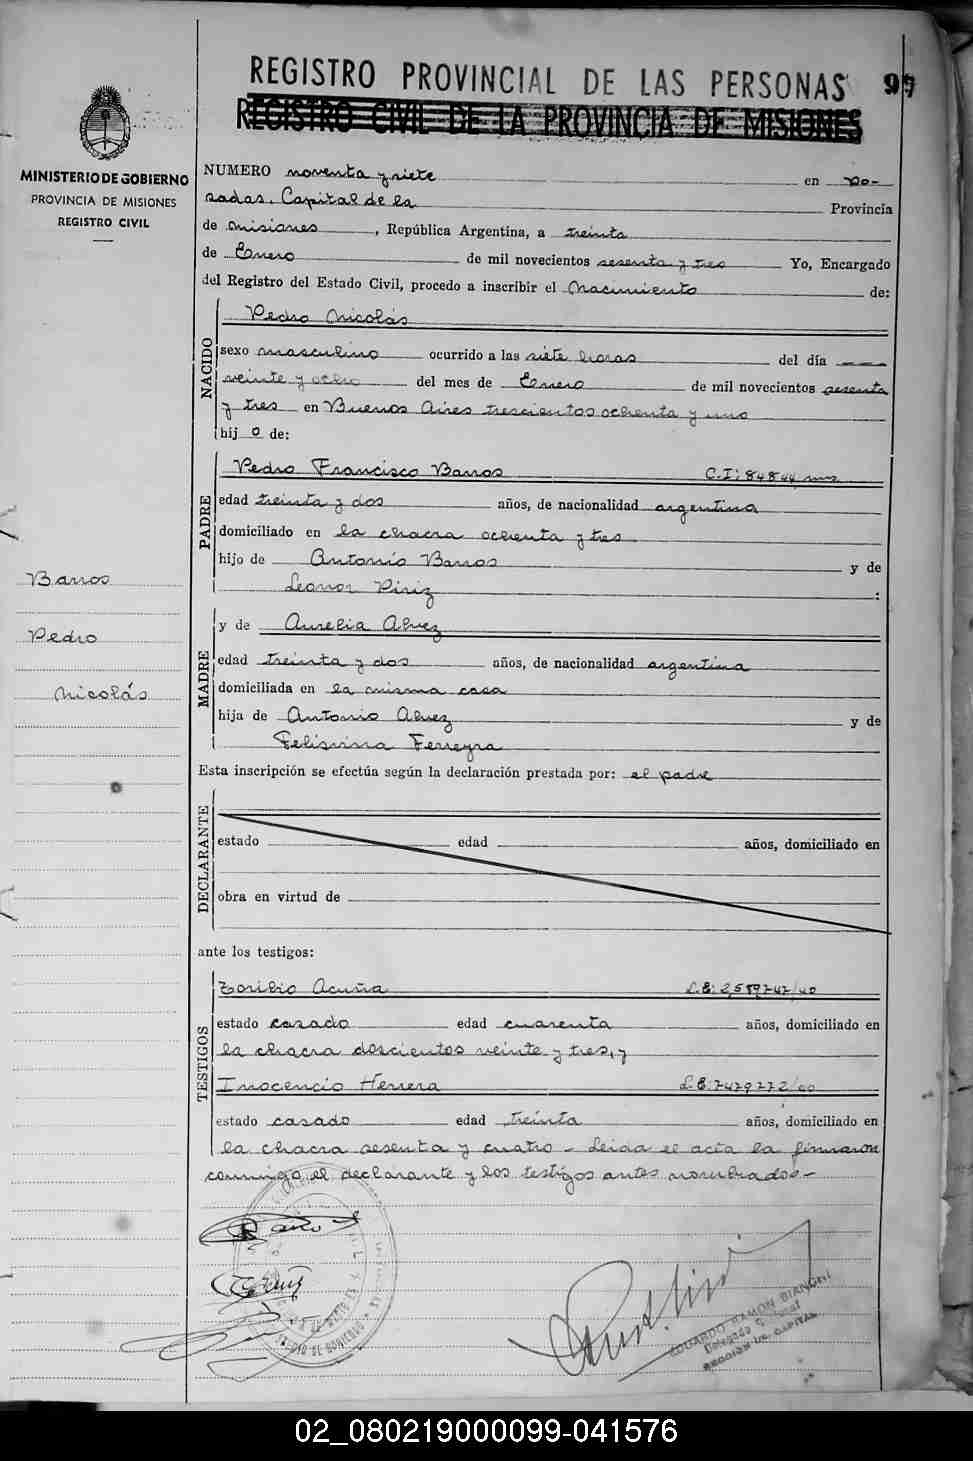 REGISTRO PROVINCIAL DE LAS PERSONAS 97
REGISTRO CIVIL DE LA PROVINCIA DE MISIONES
MINISTERIO DE GOBIERNO
PROVINCIA DE MISIONES
REGISTRO CIVIL
NUMERO noventa y siete en Po-
sadas, Capital de la Provincia
de Misiones, República Argentina, a treinta
de Enero de mil novecientos sesenta y tres Yo, Encargado
del Registro del Estado Civil, procedo a inscribir el Nacimiento de:
NACIDO
Pedro Nicolás
sexo masculino ocurrido a las siete horas del día
veinte y ocho del mes de Enero de mil novecientos sesenta
y tres en Buenos Aires trescientos ochenta y uno
hij o de:
PADRE
Pedro Francisco Barros C.I: 84844
edad treinta y dos años, de nacionalidad argentina
domiciliado en la chacra ochenta y tres
hijo de Antonio Barros y de
Leonor Piriz :
MADRE
y de Aurelia Alvez
edad treinta y dos años, de nacionalidad argentina
domiciliada en la misma casa
hija de Antonio Alvez y de
Felisvina Ferreyra
Barros
Pedro
Nicolás
Esta inscripción se efectúa según la declaración prestada por: el padre
DECLARANTE
estado edad años, domiciliado en
obra en virtud de
ante los testigos:
TESTIGOS
Toribio Acuña L.E: 2,589747/40
estado casado edad cuarenta años, domiciliado en
la chacra doscientos veinte y tres, y
Inocencio Herrera L.E: 7479772/00
estado casado edad treinta años, domiciliado en
la chacra sesenta y cuatro - Leida el acta la firmaron
conmigo el declarante y los testigos antes nombrados -
EDUARDO RAMON BIANCHI
Delegado
SECCION DE CAPITAL
02_080219000099-041576